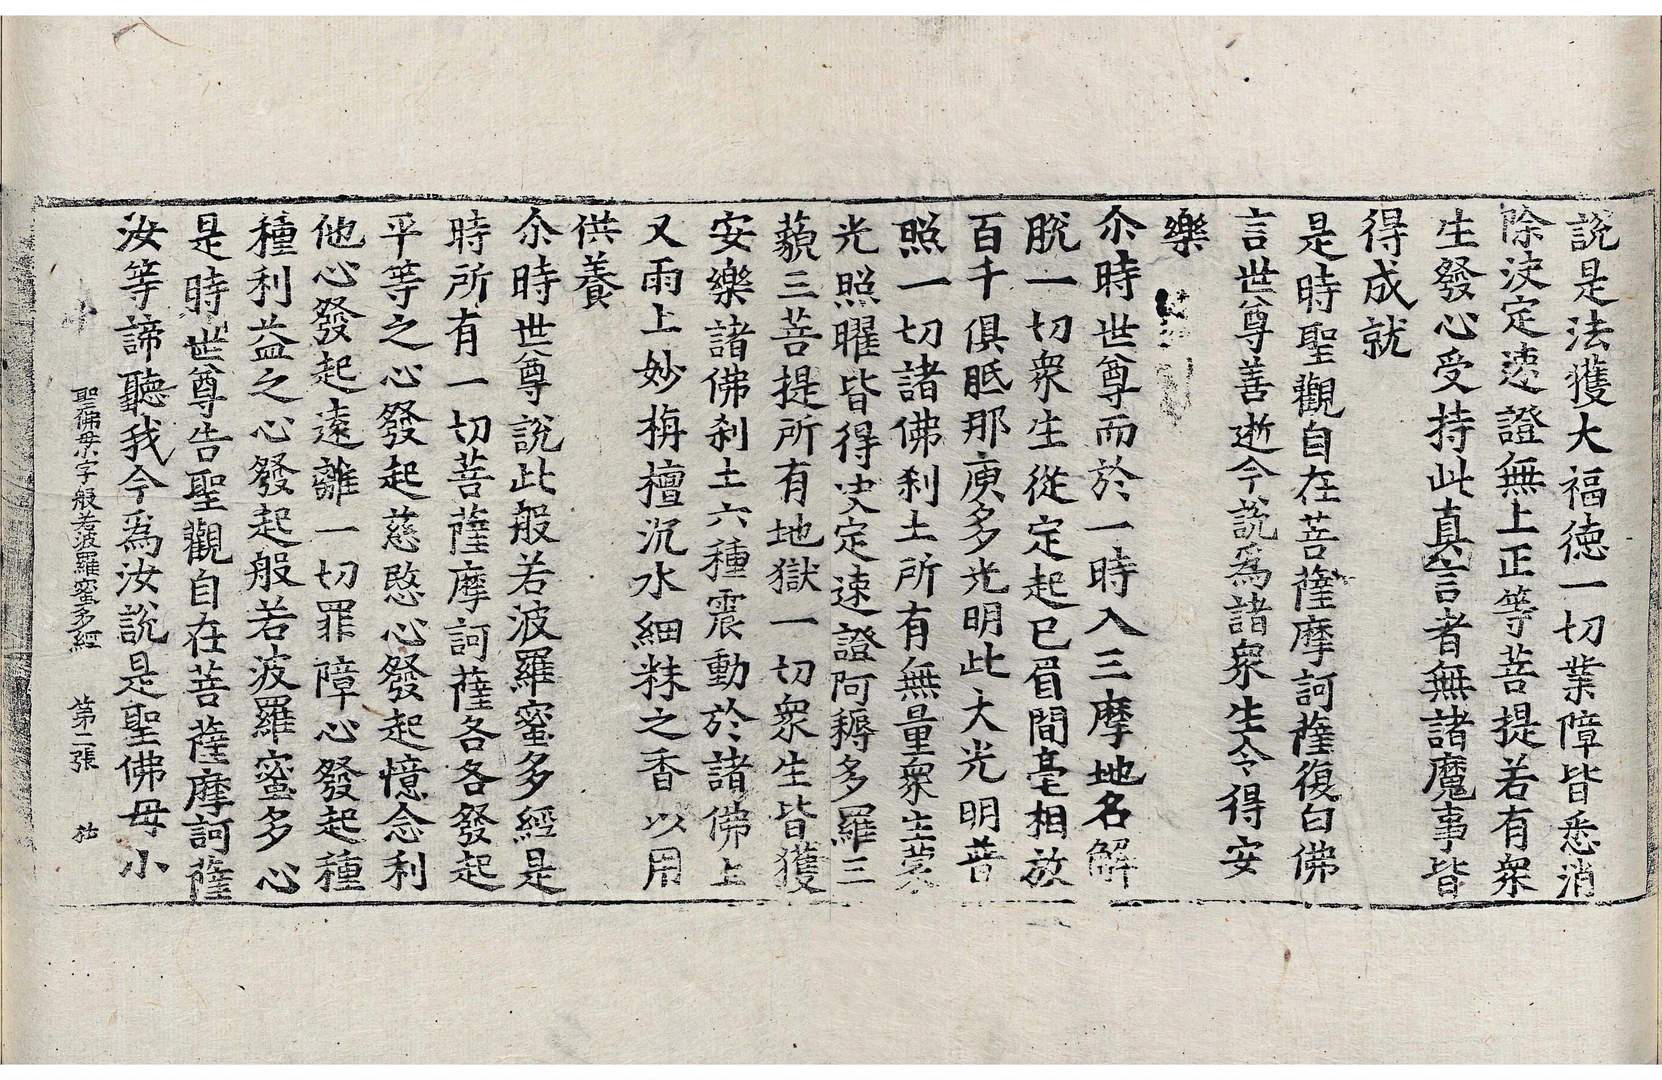 說是法獲大福德一切業障皆悉消
除決定速證無上正等菩提若有衆
生發心受持此真言者無諸魔事皆
得成就
是時聖觀自在菩薩摩訶薩復白佛
言世尊善逝今說爲諸衆生令得安
樂
尒時世尊而於一時入三摩地名解
脫一切衆生從定起已眉間毫相放
百千俱胝那庾多光明此大光明普
照一切諸佛刹土所有無量衆生蒙
光照曜皆得決定速證阿耨多羅三
藐三菩提所有地獄一切衆生皆獲
安樂諸佛刹土六種震動於諸佛上
又雨上妙栴檀沉水細粖之香以用
供養
尒時世尊說此般若波羅蜜多經是
時所有一切菩薩摩訶薩各各發起
平等之心發起慈愍心發起憶念利
他心發起遠離一切罪障心發起種
種利益之心發起般若波羅蜜多心
是時世尊告聖觀自在菩薩摩訶薩
汝等諦聽我今爲汝說是聖佛母小
聖佛母小字般若波羅蜜多經 第二張